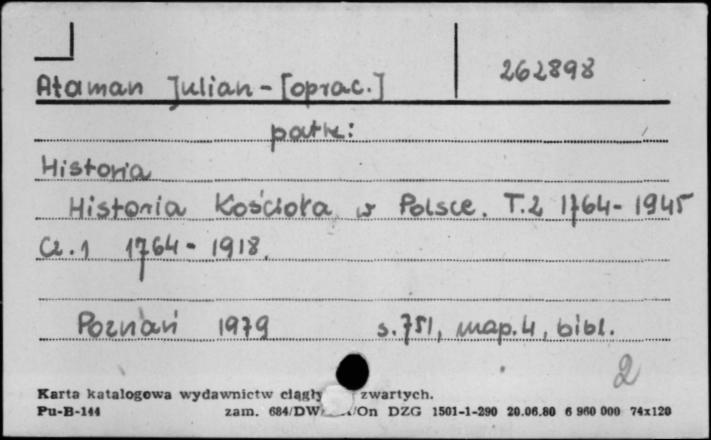 262898
Ataman Julian - [oprac.]
patrz:
Historia
Historia Kościoła w Polsce. T.2 1764-1945
Cz.1 1764-1918.
Poznań 1979 s.751, map.4, bibl.
2
Karta katalogowa wydawnictw ciągły zwartych.
Pu-B-144 zam. 684/DW /On DZG 1501-1-290 20.06.80 6 960 000 74x120